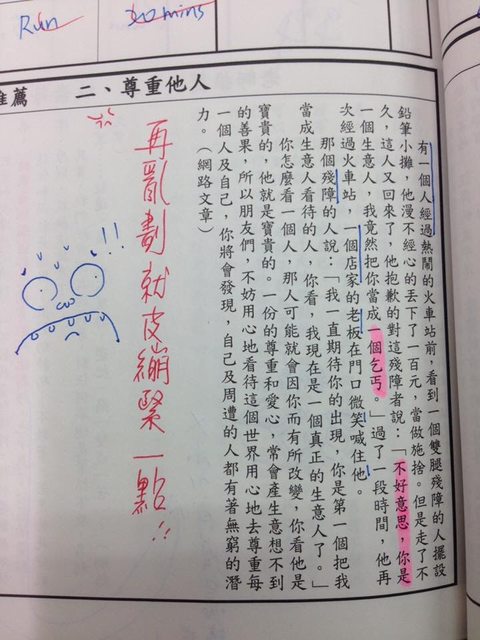 Run
30 mins
二、尊重他人
推薦
有一個人經過熱鬧的火車站前，看到一個雙腿殘障的人擺設
鉛筆小攤，他漫不經心的丟下了一百元，當做施捨。但是走了不
久，這人又回來了，他抱歉的對這殘障者說：「不好意思，你是
一個生意人，我竟然把你當成一個乞丐。」過了一段時間，他再
次經過火車站，一個店家的老板在門口微笑喊住他。
那個殘障的人說：「我一直期待你的出現，你是第一個把我
當成生意人看待的人，你看，我現在是一個真正的生意人了。」
你怎麼看一個人，那人可能就會因你而有所改變，你看他是
寶貴的，他就是寶貴的。一份的尊重和愛心，常會產生意想不到
的善果，所以朋友們，不妨用心地看待這個世界用心地去尊重每
一個人及自己，你將會發現，自己及周遭的人都有著無窮的潛
力。（網路文章）
再亂劃就皮繃緊一點!!
!!